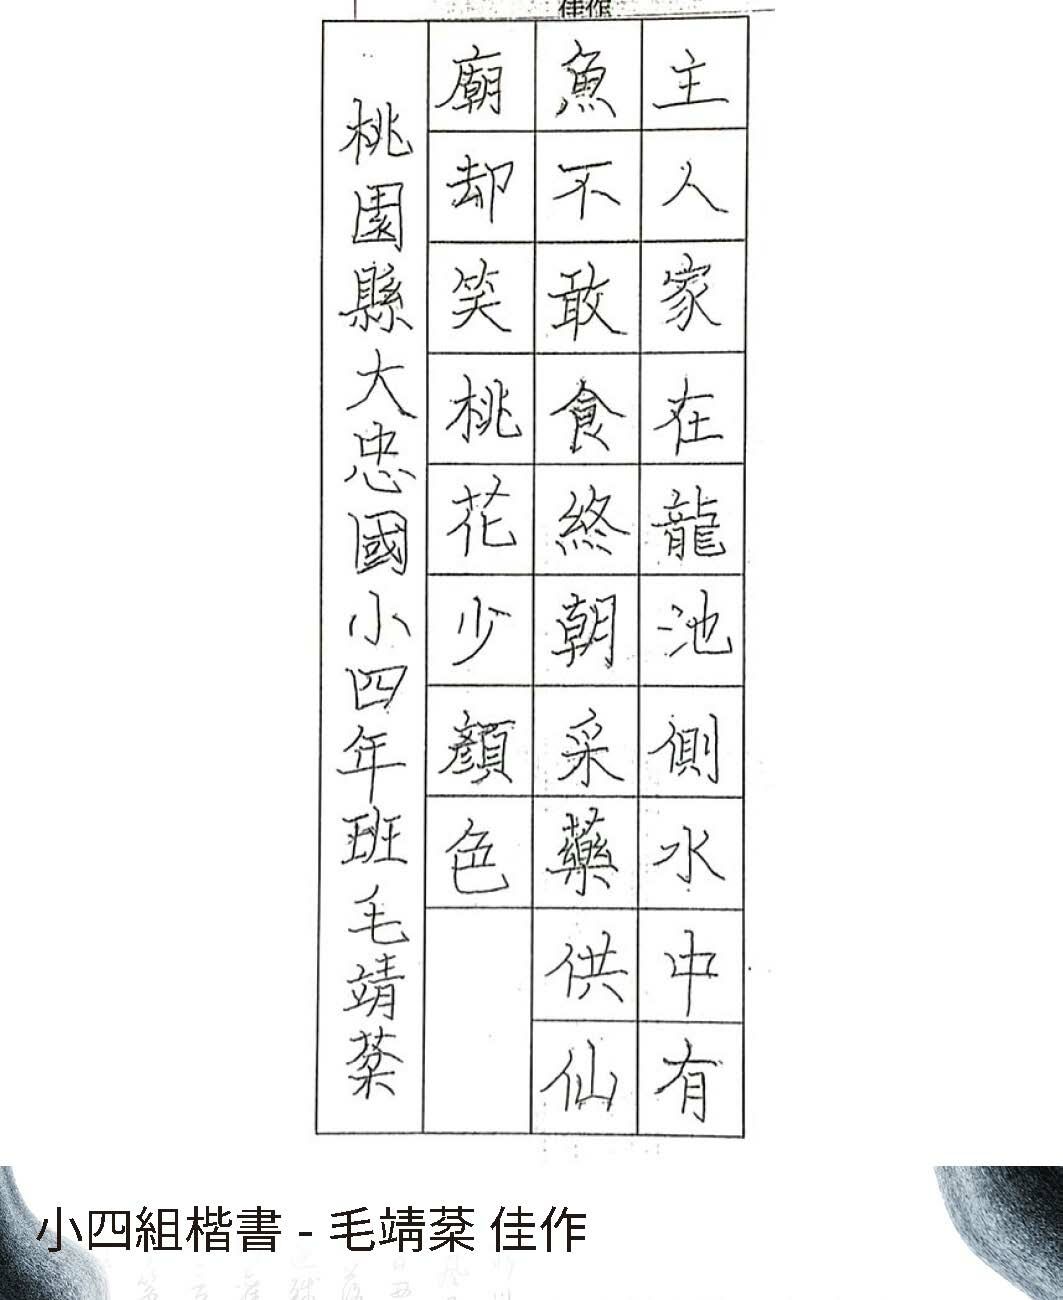 佳作
主人家在龍池側水中有
魚不敢食終朝采藥供仙
廟却笑桃花少顏色
桃園縣大忠國小四年班毛靖棻
小四組楷書 - 毛靖棻 佳作